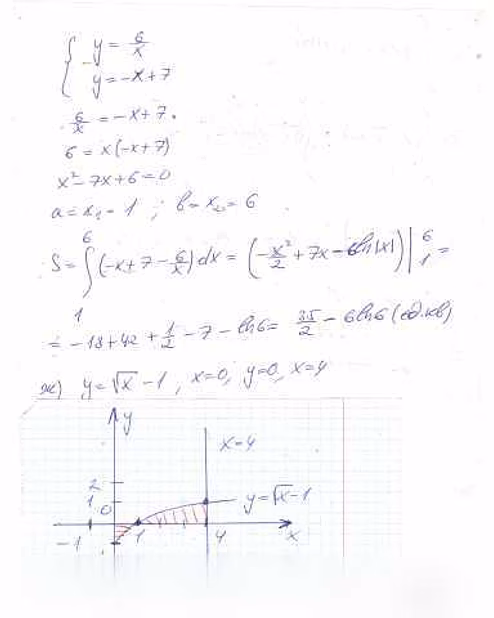 { y = 6/x
y = -x+7
6/x = -x+7.
6 = x(-x+7)
x² - 7x + 6 = 0
a = x₁ = 1 ; b = x₂ = 6
S = ∫₁⁶ (-x+7-6/x) dx = (-x²/2 + 7x - 6ln|x|) |₁⁶ =
= -18+42+1/2-7-ln6 = 35/2 - 6ln6 (ед.кв)
ж) y=√x-1, x=0, y=0, x=4
y
x=4
2
1
0
y=√x-1
-1
1
4
x